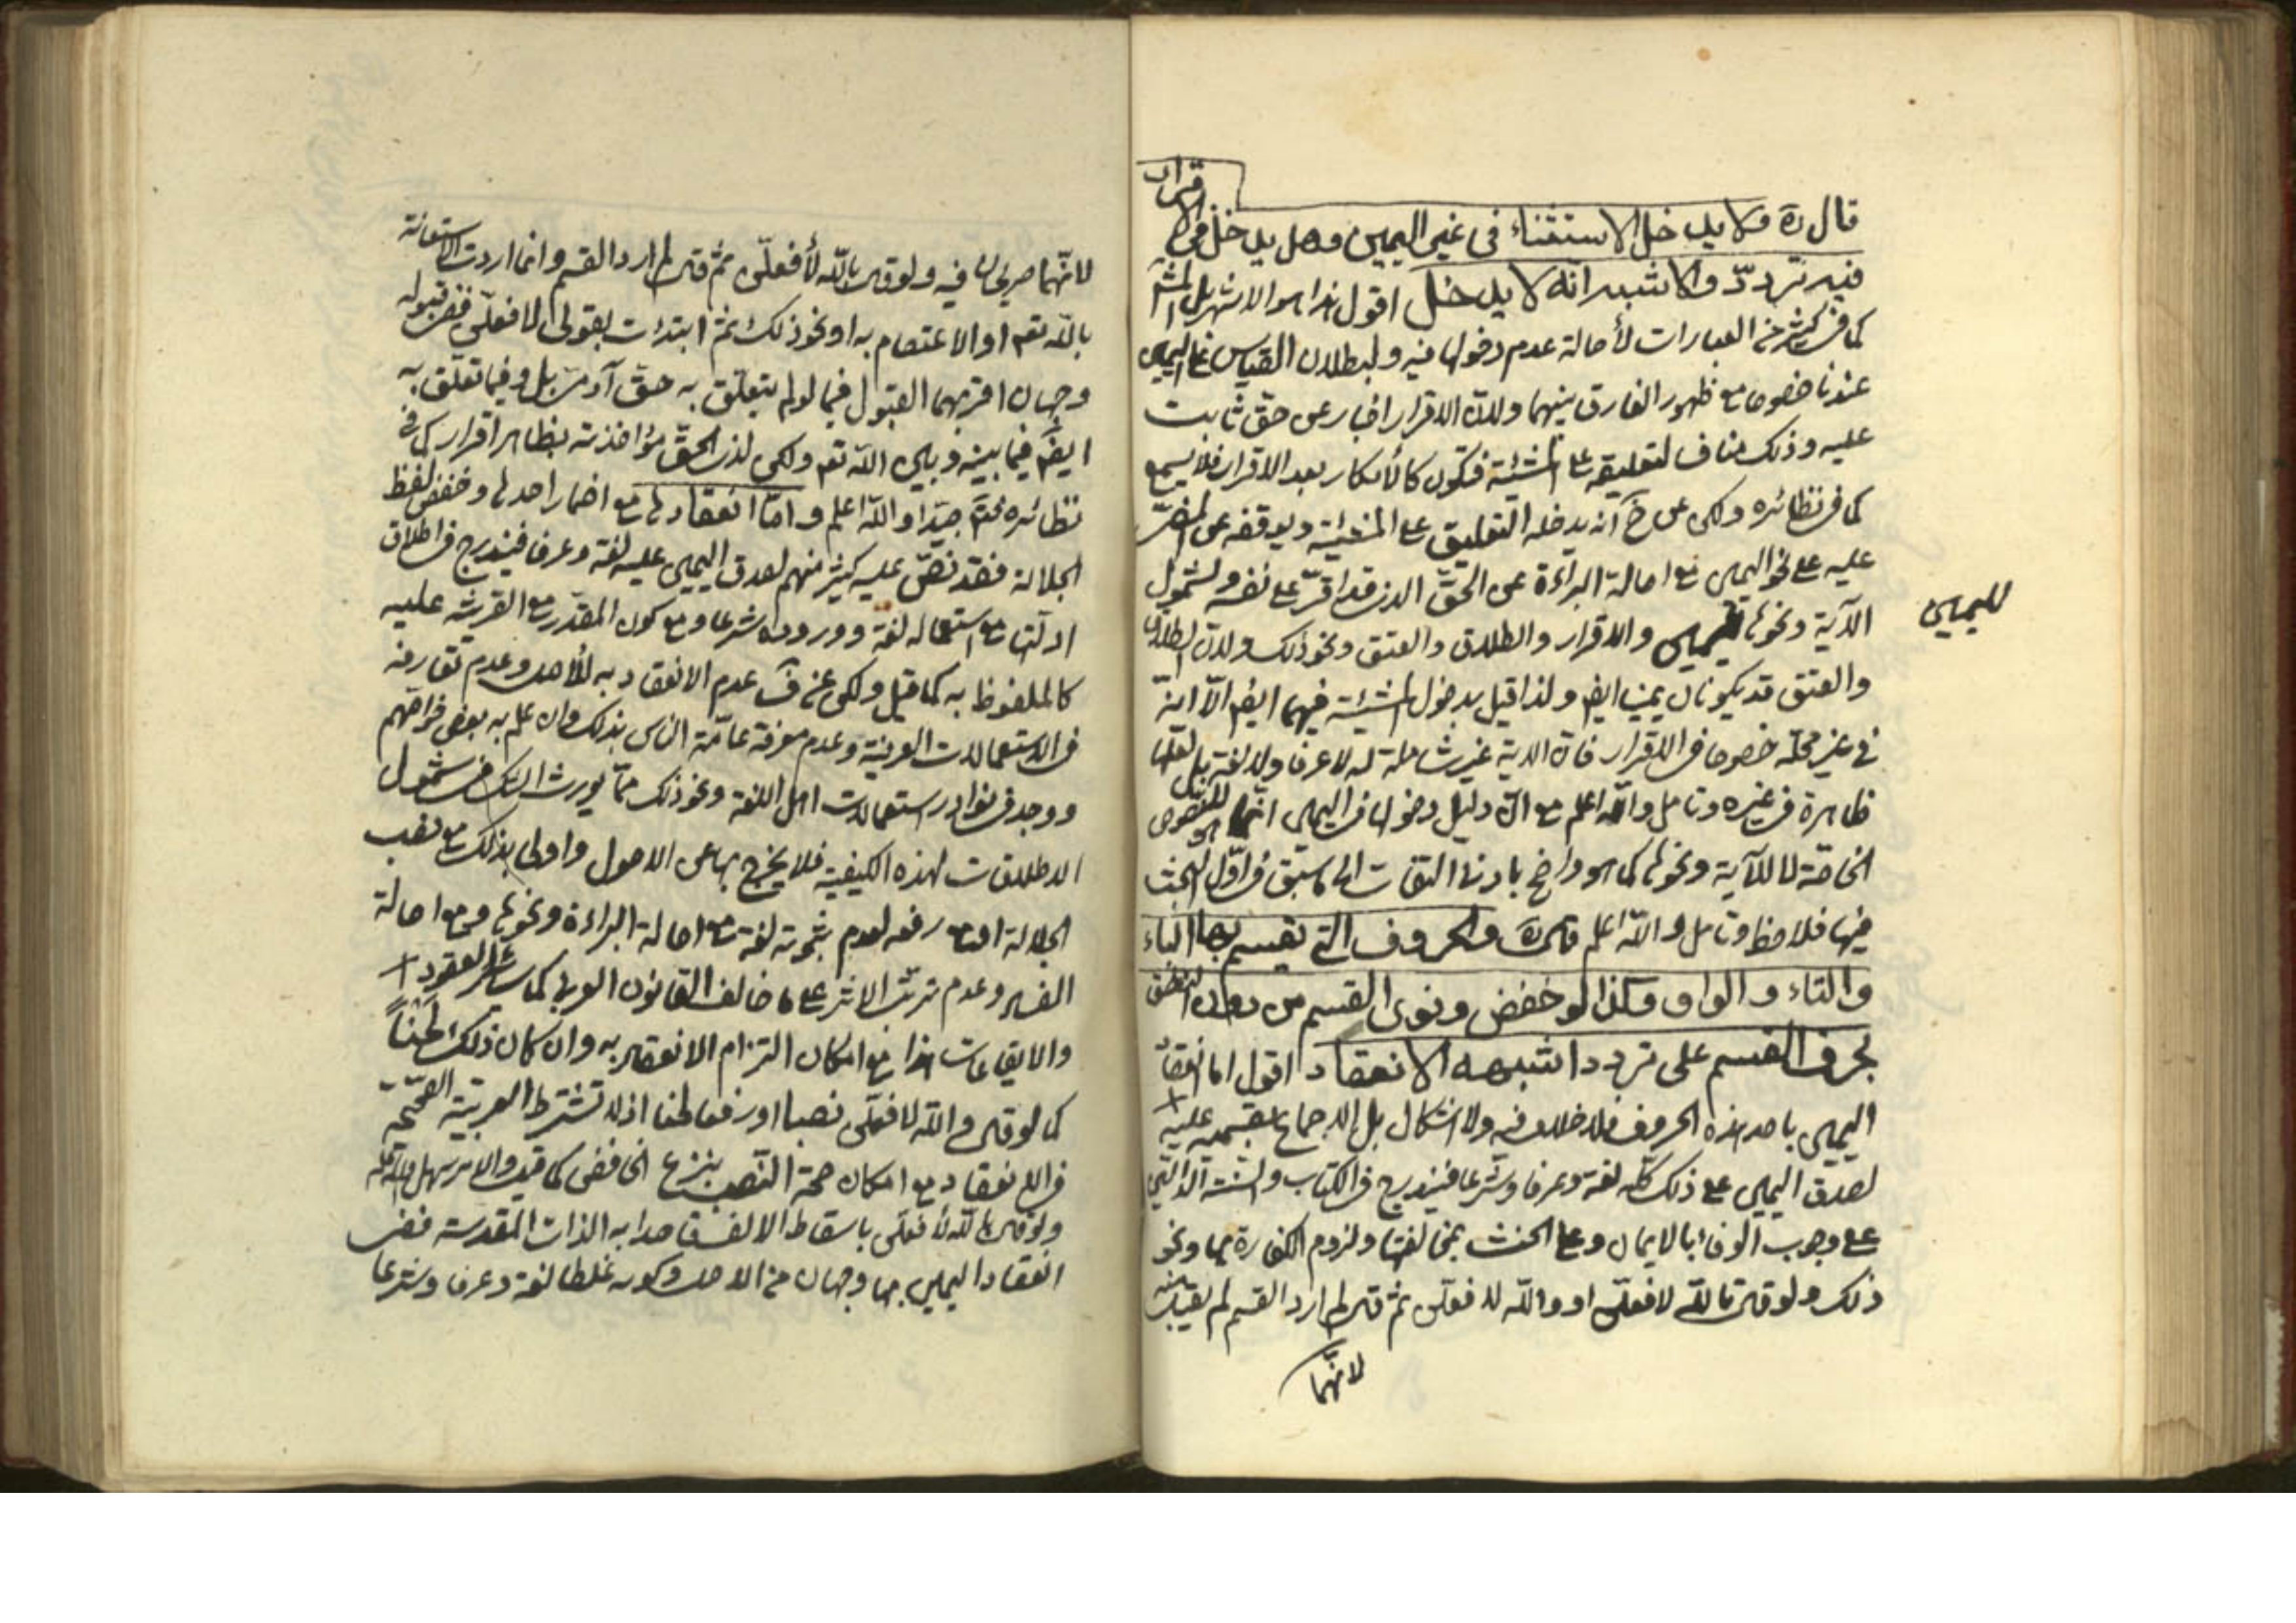 قال ره ولا يدخل الاستثناء في غير اليمين وهل يدخل في الاقرار
فيه تردد والاشبه انه لا يدخل اقول هذا هو الاشهر بل المش
كما في كثير من العبارات لأصالة عدم دخولها فيه ولبطلان القياس على اليمين
عندنا خصوصا مع ظهور الفارق بينهما ولان الاقرار اخبار عن حق ثابت
عليه وذلك مناف لتعليقه على المشئية فتكون كالأنكار بعد الاقرار فلا يسمع
كما في نظائره ولكن عن خ آنه يدخله التعليق على المشيئة ويوقفه عن
عليه على نحو اليمين مع اصالة البراءة عن الحق الذي قد اقر على نفسه ولشمول
الآية ونحوها لليمين والاقرار والطلاق والعتق ونحو ذلك ولان الطلاق
لليمين
والعتق قد يكونان يمينا ايض ولذا قيل بدخول المشئية فيهما ايض الا انه
في غير محله خصوصا في الاقرار فان الاية غير شاملة له لا عرفا ولا لغة بل لعلها
ظاهرة في غيره وتامل والله اعلم مع ان دليل دخولها في اليمين انما هو للنصوص
الخاصة لا للآية ونحوها كما هو واضح بادنى التفات الى ما سبق في اول البحث
فيها فلاحظ وتامل والله اعلم قال ره والحروف التي يقسم بها الباء
والتاء والواو وكذا لو خفض ونوى القسم من دون النطق
بحرف القسم على تردد اشبهه الانعقاد اقول اما انعقاد
اليمين باحد هذه الحروف فلا خلاف فيه ولا اشكال بل الاجماع بقسميه عليه
لصدق اليمين على ذلك كله لغة وعرفا وشرعا فيندرج في الكتاب والسنة الدالين
على وجوب الوفاء بالايمان وعلى الحنث بمخالفتها ولزوم الكفارة بها ونحو
ذلك ولو قال تالله لافعلن او والله لافعلن ثم قال لم ارد القسم لم يقبل منه
لانهما
لانهما صريحان فيه ولو قال بالله لأفعلن ثم قال لم ارد القسم وانما اردت الاستعانة
بالله تعم او الاعتصام به او نحو ذلك ثم ابتدئت بقولي لافعلن ففي قبوله
وجهان اقربهما القبول فيما لو لم يتعلق به حق آدمي بل وفيما تعلق به
ايض فيما بينه وبين الله تعم ولكن لذي الحق مؤاخذته بظاهر اقراره كما في
نظائره فتم جيدا والله اعلم واما انعقادها مع اضمار احدها وخفض لفظ
الجلالة فقد نص عليه كثير منهم لصدق اليمين عليه لغة وعرفا فيندرج في اطلاق
ادلتها مع استعماله لغة ووروده شرعا ومع كون المقدر مع القرينة عليه
كالملفوظ به كما قيل ولكن عن ف عدم الانعقاد به للأصل وعدم تعارفه
في الاستعمالات العرفية وعدم معرفة عامة الناس بذلك وان علم به بعض خواصهم
ووجد في نوادر استعمالات اهل اللغة ونحو ذلك مما يورث الشك في شمول
الاطلاقات لهذه الكيفية فلا يخرج بها عن الاصول واولى بذلك مع نصب
الجلالة او مع رفعه لعدم ثبوته لغة مع اصالة البراءة ونحوها ومع اصالة
الفساد وعدم ترتب الاثر على ما خالف القانون العربي كما في سائر العقود
والايقاعات هذا مع امكان التزام الانعقاد به وان كان ذلك لحنا
كما لو قال والله لافعلن نصبا او رفعا لحنا اذ لا تشترط العربية الصحيحة
في الانعقاد مع امكان صحة النصب بنزع الخافض كما قيل والامر سهل
ولو قال بالله لأفعلن باسقاط الالف قاصدا به الذات المقدسة ففي
انعقاد اليمين بها وجهان من الاصل وكونه غلطا لغة وعرفا وشرعا